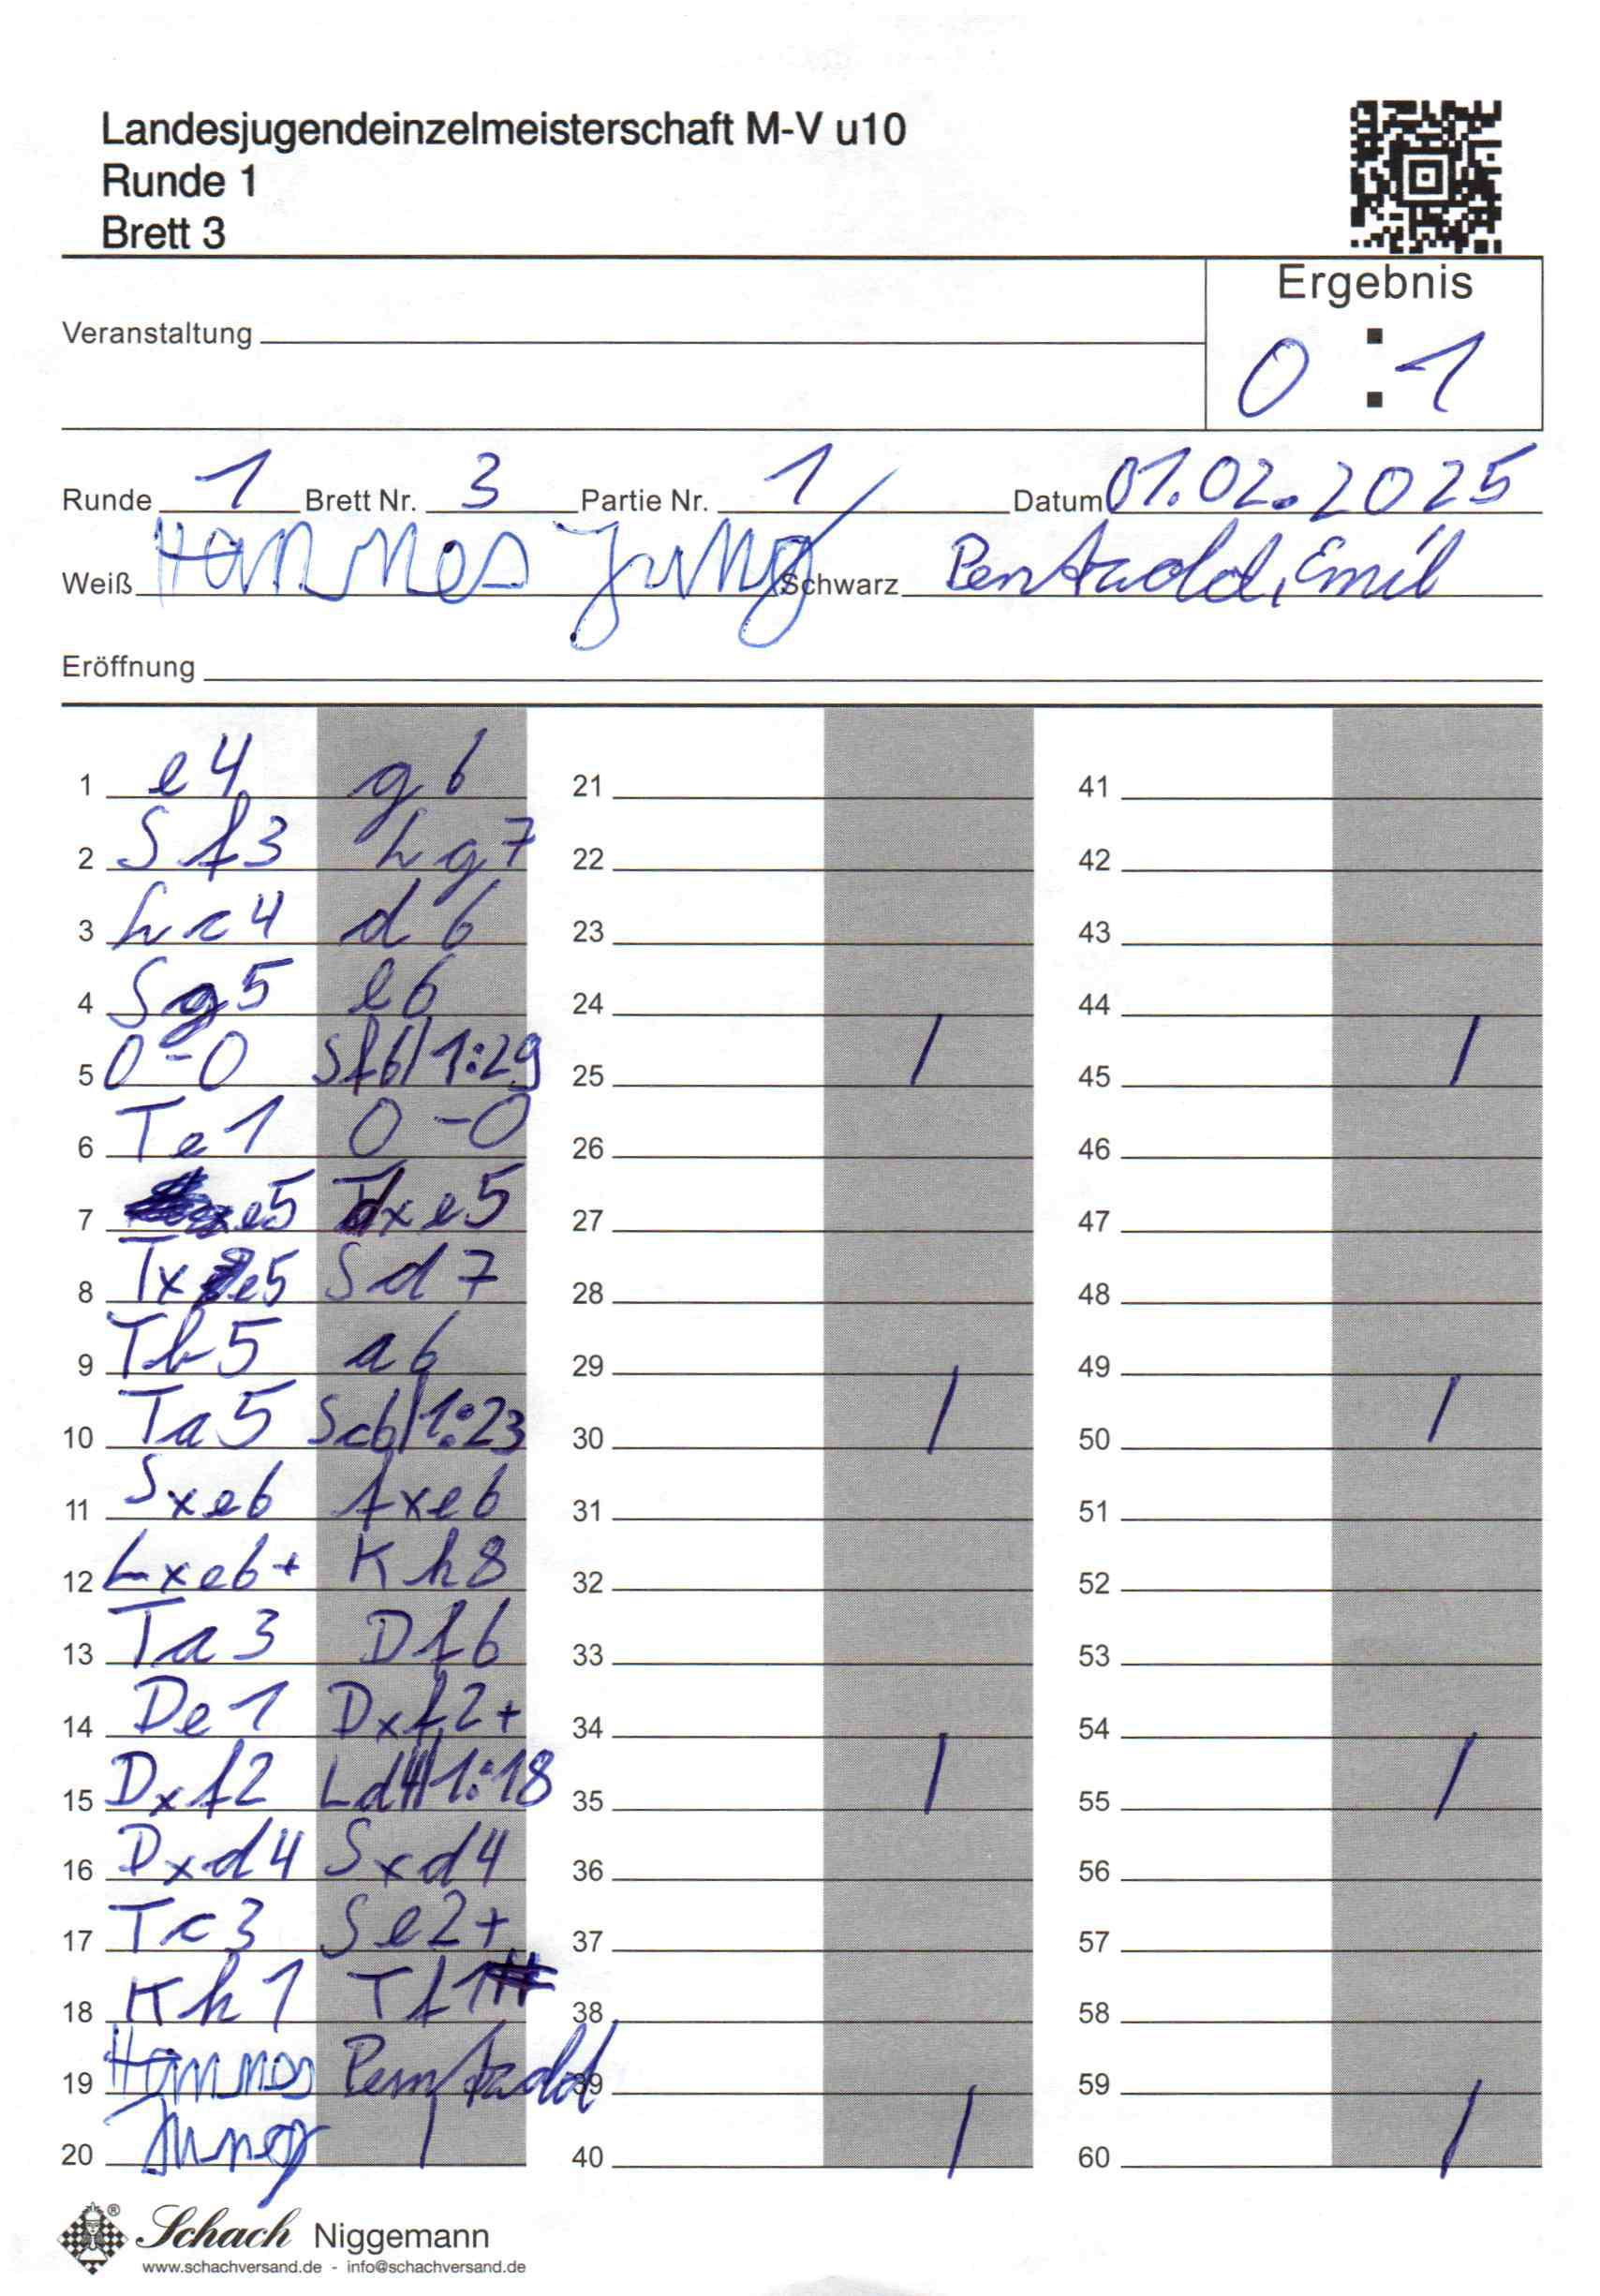 Landesjugendeinzelmeisterschaft M-V u10
Runde 1
Brett 3
Ergebnis
0 : 1
Veranstaltung
Runde 1 Brett Nr. 3 Partie Nr. 1 Datum 01.02.2025
Weiß Hannes Jung Schwarz Pentzold, Emil
Eröffnung
1 e4 g6
2 Sf3 Lg7
3 Lc4 d6
4 Sg5 e6
5 0-0 Sf6/1:29
6 Te1 0-0
7 e5 dxe5
8 Txe5 Sd7
9 Tb5 a6
10 Ta5 Sc6/1:23
11 Sxe6 fxe6
12 Lxe6+ Kh8
13 Ta3 Df6
14 De1 Dxf2+
15 Dxf2 Ld4/1:18
16 Dxd4 Sxd4
17 Tc3 Se2+
18 Kh1 Tf1#
19 Hannes Pentzold
20 Jung /
21
22
23
24
25 /
26
27
28
29
30 /
31
32
33
34
35 /
36
37
38
39
40 /
41
42
43
44
45 /
46
47
48
49
50 /
51
52
53
54
55 /
56
57
58
59
60 /
® Schach Niggemann
www.schachversand.de - info@schachversand.de